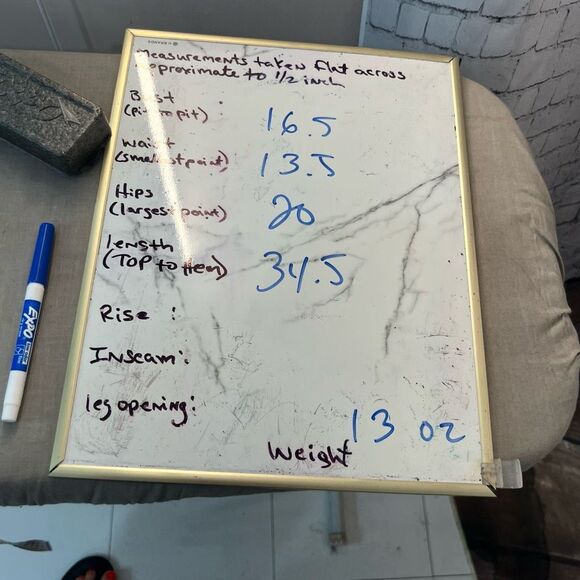 Measurements taken flat across
approximate to 1/2 inch
Bust :
(pit to pit) 16.5
waist
(smallest point) 13.5
Hips
(largest point) 20
length
(TOP to Hem) 34.5
Rise :
Inseam:
leg opening:
13 oz
Weight
EXPO